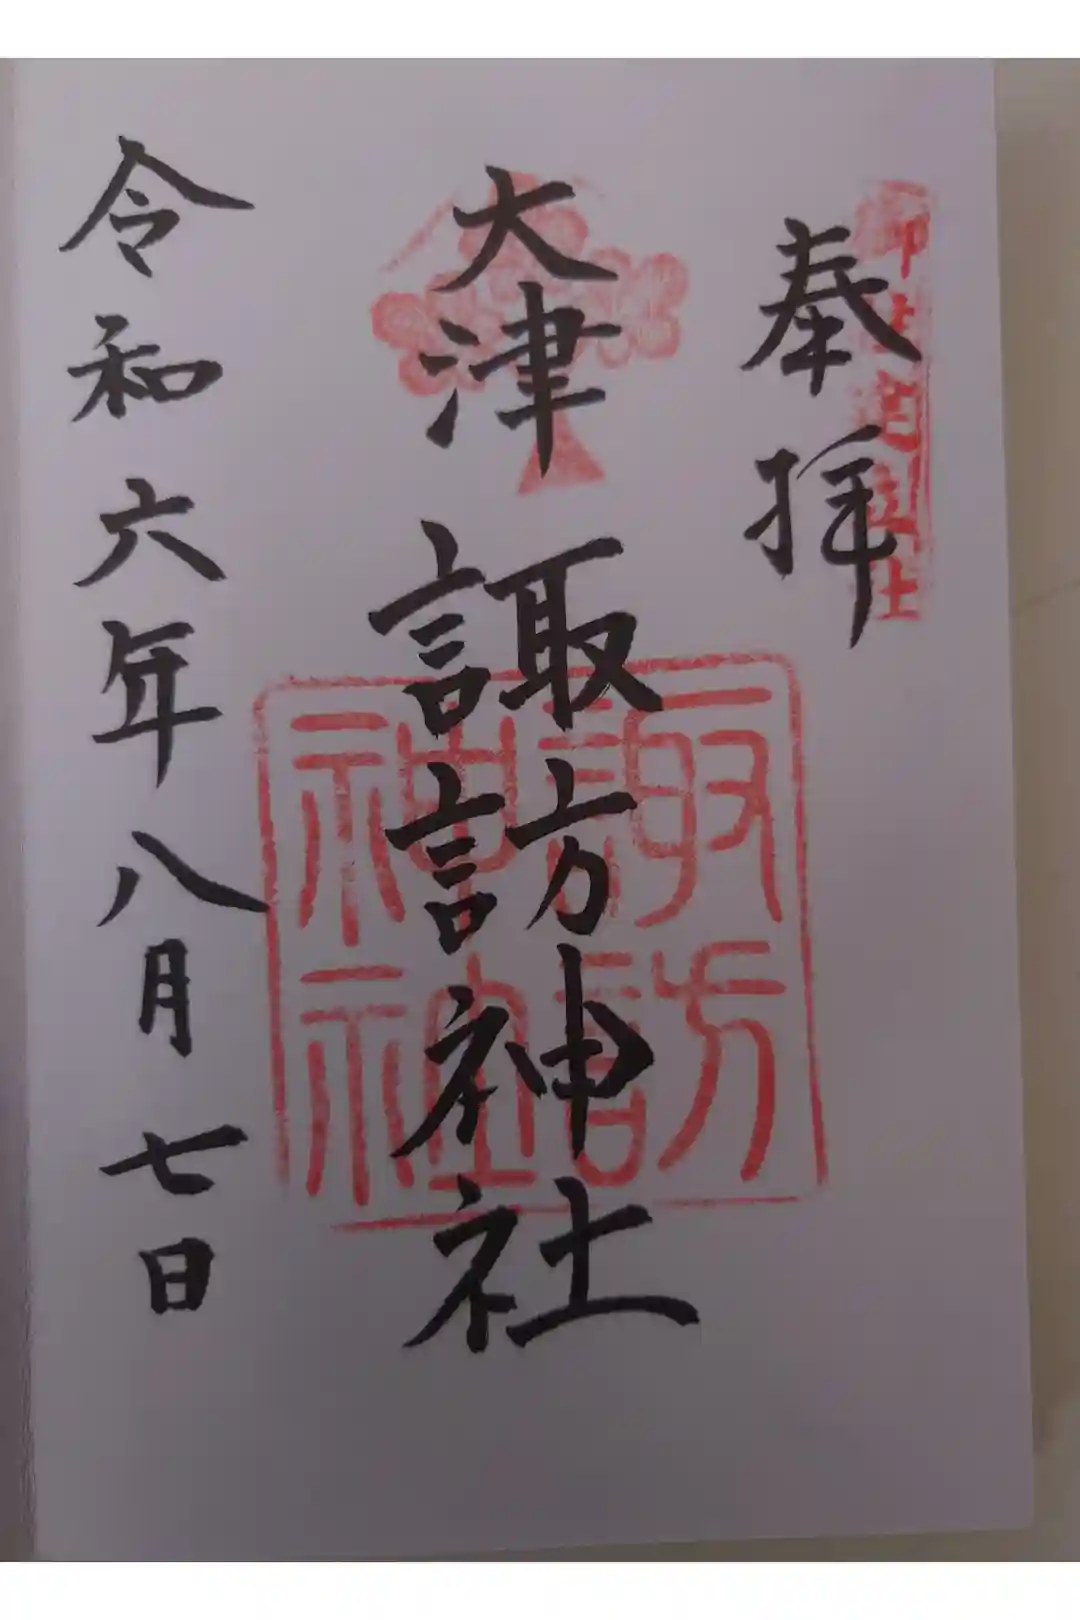 奉拝
大津諏訪神社
諏訪
神社
令和六年八月七日